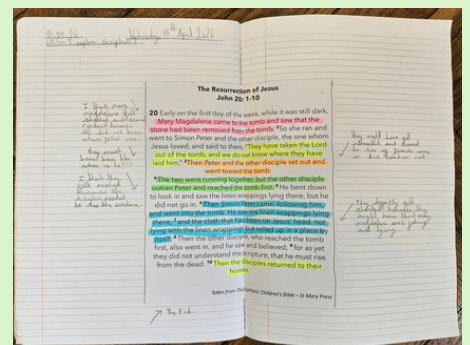 15.04.26
Wednesday 15th April 2026
LO: Can I explore scripture?
The Resurrection of Jesus
John 20: 1-10
20 Early on the first day of the week, while it was still dark,
Mary Magdalene came to the tomb and saw that the
stone had been removed from the tomb. ²So she ran and
went to Simon Peter and the other disciple, the one whom
Jesus loved, and said to them, "They have taken the Lord
out of the tomb, and we do not know where they have
laid him." ³Then Peter and the other disciple set out and
went toward the tomb.
⁴The two were running together, but the other disciple
outran Peter and reached the tomb first. ⁵He bent down
to look in and saw the linen wrappings lying there, but he
did not go in. ⁶Then Simon Peter came, following him,
and went into the tomb. He saw the linen wrappings lying
there, ⁷and the cloth that had been on Jesus' head, not
lying with the linen wrappings but rolled up in a place by
itself. ⁸Then the other disciple, who reached the tomb
first, also went in, and he saw and believed; ⁹for as yet
they did not understand the scripture, that he must rise
from the dead. ¹⁰Then the disciples returned to their
homes.
Taken from The Catholic Children's Bible – St Mary Press
I think Mary
Magdalene felt
because
she did not know
where Jesus was.
they must
have been
I think they
felt
because the
to the
they might have felt
and
to see if Jesus was
in his tomb or not.
They
they
might have
The End.